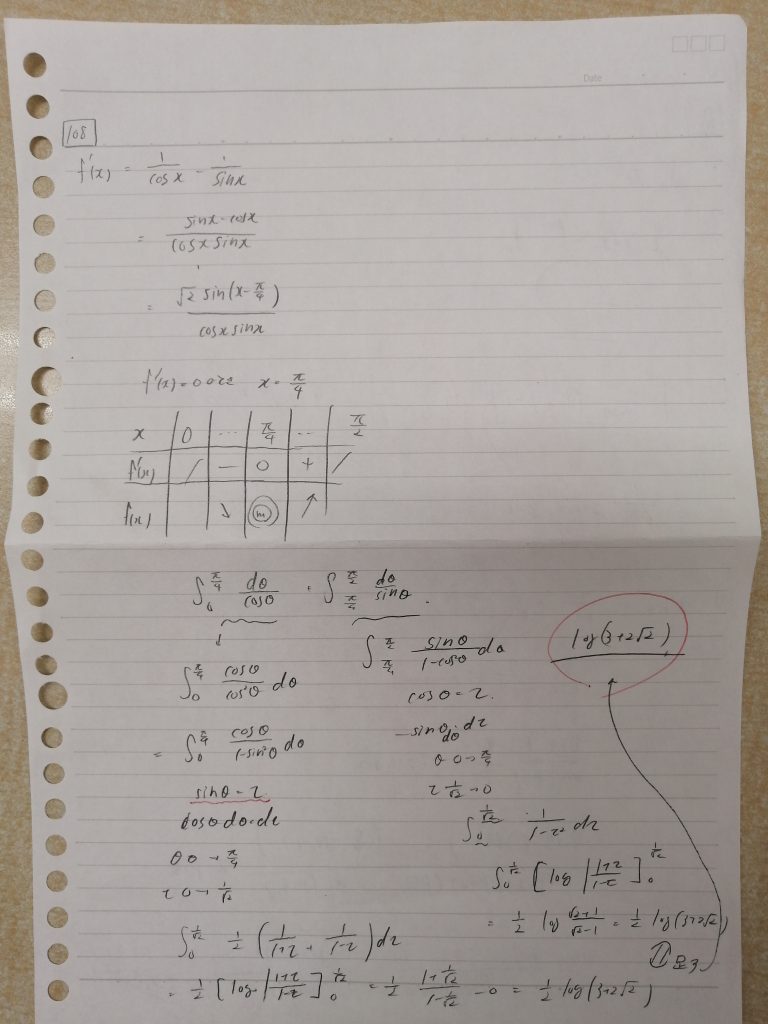 Date
108
f'(x) = 1/cosx - 1/sinx
= (sinx-cosx)/(cosx sinx)
= √2 sin(x-π/4)/(cosx sinx)
f'(x)=0 x=π/4
x 0 … π/4 … π/2
f'(x) / - 0 + /
f(x) ↘ m ↗
∫_0^{π/4} dθ/cosθ + ∫_{π/4}^{π/2} dθ/sinθ
∫_0^{π/4} cosθ/cos²θ dθ
= ∫_0^{π/4} cosθ/(1-sin²θ) dθ
sinθ=t
cosθ dθ=dt
θ 0→π/4
t 0→1/√2
∫_0^{1/√2} 1/2 (1/(1+t) + 1/(1-t)) dt
= 1/2 [log|(1+t)/(1-t)|]_0^{1/√2} = 1/2 (1+1/√2)/(1-1/√2) - 0 = 1/2 log(3+2√2)
∫_{π/4}^{π/2} sinθ/(1-cos²θ) dθ
cosθ=t
-sinθ dθ=dt
θ 0→π/4
t 1/√2→0
∫_0^{1/√2} 1/(1-t²) dt
∫_0^{1/√2} [log|(1+t)/(1-t)|]_0^{1/√2}
= 1/2 log (√2+1)/(√2-1) = 1/2 log(3+2√2)
log(3+2√2)